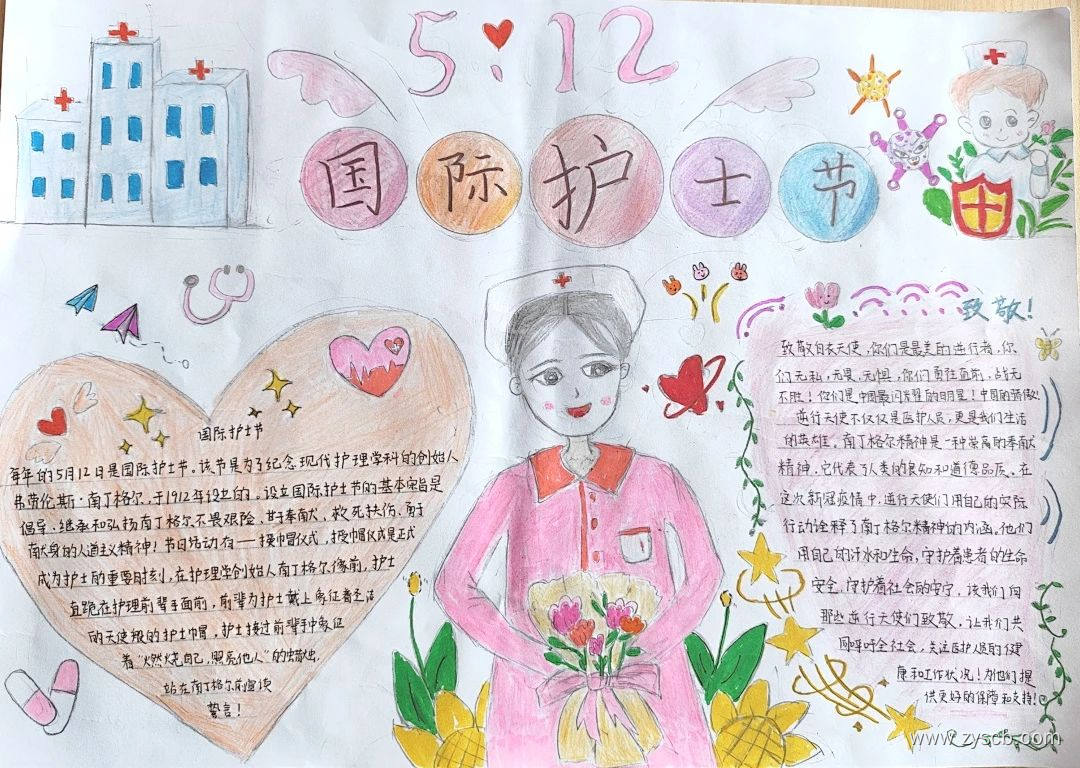 5.12
国际护士节
国际护士节
每年的5月12日是国际护士节。该节是为了纪念现代护理学科的创始人
弗劳伦斯·南丁格尔，于1912年设立的。设立国际护士节的基本宗旨是
倡导、继承和弘扬南丁格尔不畏艰险、甘于奉献、救死扶伤、勇于
献身的人道主义精神！节日活动有——授帽仪式，授帽仪式是正式
成为护士的重要时刻，在护理学创始人南丁格尔像前，护士
直跪在护理前辈手面前，前辈为护士戴上象征着圣洁
的天使般的护士巾冒，护士接过前辈手中象征
着“燃烧自己，照亮他人”的蜡烛，
站在南丁格尔前宣读
誓言！
致敬！
致敬白衣天使，你们是最美的逆行者，你
们无私，无畏，无惧，你们勇往直前，战无
不胜！你们是中国最闪耀的明星！中国的骄傲！
逆行天使不仅仅是医护人员，更是我们生活
的英雄。南丁格尔精神是一种崇高的奉献
精神，它代表了人类的良知和道德品质，在
这次新冠疫情中，逆行天使们用自己的实际
行动诠释了南丁格尔精神的内涵，他们
用自己的汗水和生命，守护着患者的生命
安全，守护着社会的安宁，该我们向
那些逆行天使们致敬，让我们共
同呼吁全社会，关注医护人员的健
康和工作状况！为他们提
供更好的保障和支持！
www.zyscb.com